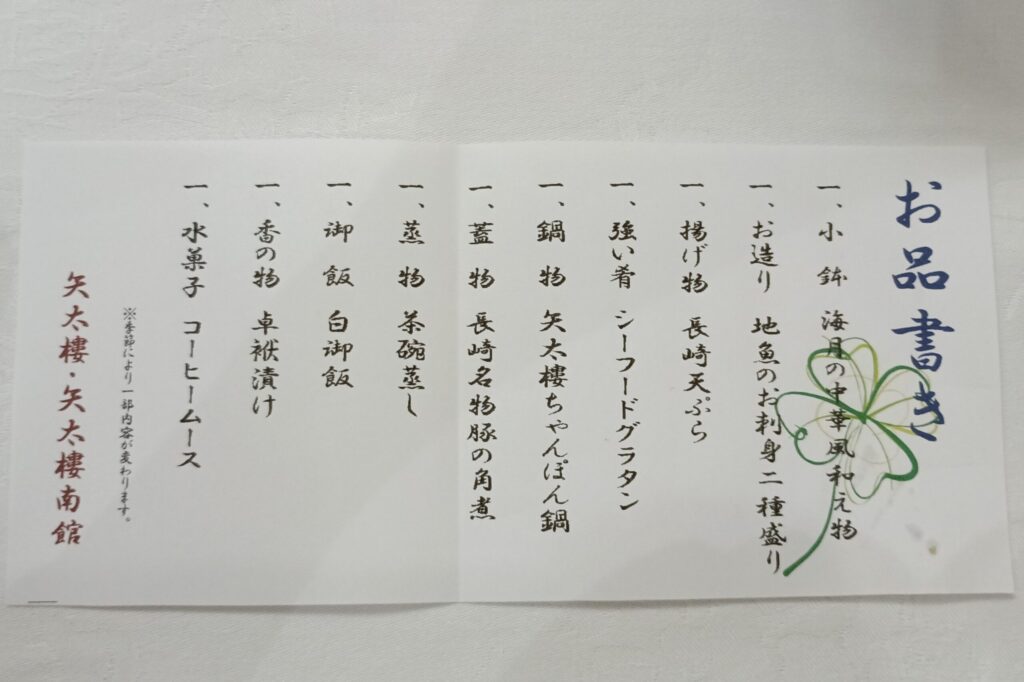 お品書き
一、小鉢 海月の中華風和え物
一、お造り 地魚のお刺身二種盛り
一、揚げ物 長崎天ぷら
一、強い肴 シーフードグラタン
一、鍋物 矢太樓ちゃんぽん鍋
一、蓋物 長崎名物豚の角煮
一、蒸物 茶碗蒸し
一、御飯 白御飯
一、香の物 卓袱漬け
一、水菓子 コーヒームース
※季節により一部内容が変わります。
矢太樓・矢太樓南館